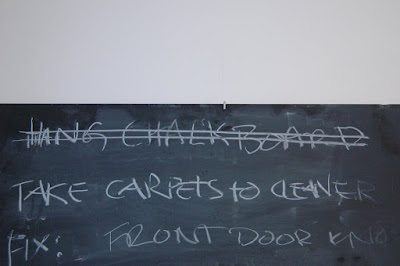 HANG CHALKBOARD
TAKE CARPETS to CLEANER
FIX: FRONT DOOR KNO